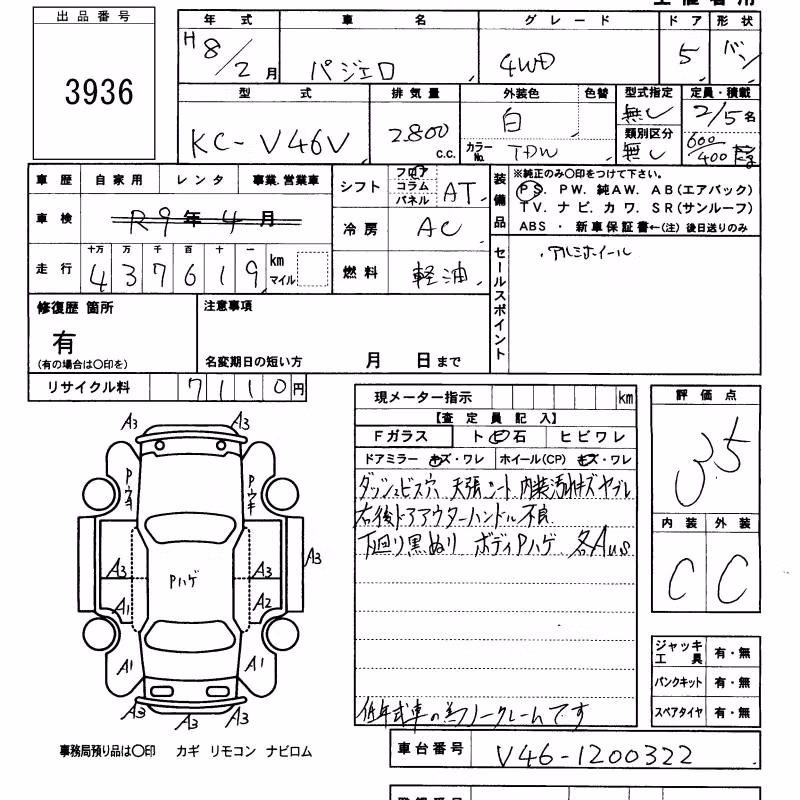 出品番号
3936
年式 車名 グレード ドア 形状
H8/2月 パジェロ 4WD 5 バン
型式 排気量 外装色 色替 型式指定 定員・積載
KC-V46V 2800 c.c. 白 無し 2/5名
カラーNo. TDW 類別区分 無し 600/400
車歴 自家用 レンタ 事業.営業車
車検 R9年4月
走行 十万 万 千 百 十 一 km マイル
437619
シフト フロア コラム パネル AT
冷房 AC
燃料 軽油
装備品
※純正のみ○印をつけて下さい。
PS. PW. 純AW. AB(エアバック)
TV. ナビ. カワ. SR(サンルーフ)
ABS ・ 新車保証書←(注) 後日送りのみ
セールスポイント
アルミホイール
修復歴 箇所
有
(有の場合は○印を)
注意事項
名変期日の短い方 月 日まで
リサイクル料 7110円
現メーター指示 km
【査定員記入】
Fガラス ト ビ 石 ヒビワレ
ドアミラー キズ・ワレ ホイール(CP) キズ・ワレ
ダッシュビス穴 天張シート内装汚れキズヤブレ
右後ドアアウターハンドル不良
下回り黒ぬり ボディPハゲ 各AUS
低年式車の為ノークレームです
評価点
3.5
内装 外装
C C
ジャッキ工具 有・無
パンクキット 有・無
スペアタイヤ 有・無
A3 A3
Pウキ Pウキ
A3 A3 A3
Pハゲ
A1 A2
A1 A1
A3 A3 A3
事務局預り品は○印 カギ リモコン ナビロム
車台番号 V46-1200322